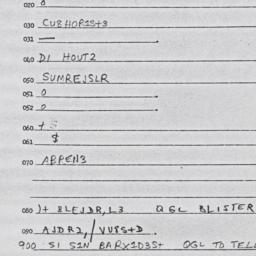 020 0
030 CUBHOP1S+3
031 —
040 D1 HOUT2
050 SUMREJSLR
051 0
052 0
060 + S
061 $
070 ABPEN3
080 )+ BLEJDR,L3 QGL BLISTER
090 AJDR2,/VUSS+D.
900 S1 S1N BARX1D3S+ OGL TO TELL